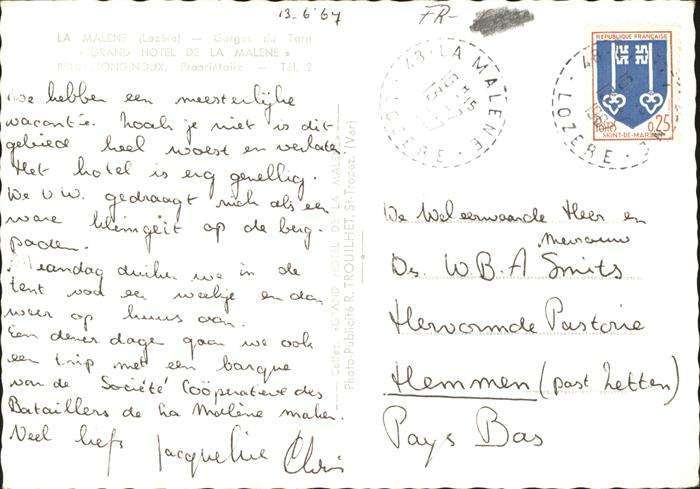 13-6-67
FR-
LA MALÈNE (Lozère) — Gorges du Tarn
« GRAND HOTEL DE LA MALÈNE »
Propriétaire — Tél. 2
We hebben een meesterlijke
vacantie. Zoals je ziet is dit
gebied heel woest en verlaten.
Het hotel is erg gezellig.
De V.W. gedraagt zich als een
ware klimgeit op de berg-
paden.
Maandag duiken we in de
tent voor een weekje en dan
weer op huis aan.
Een dezer dagen gaan we ook
een trip met een barque
van de Société Coöperative des
Bateliers de La Malène maken.
Veel liefs Jacqueline Chris
GRAND HOTEL DE LA MALÈNE
Photo-Publicité R. TROUILHET, St-Tropez (Var)
48 - LA MALENE
LOZERE
48
LOZERE
REPUBLIQUE FRANÇAISE
0,25
MONT-DE-MARSAN
De Weleerwaarde Heer en
Mevrouw
Ds. W.B.A Smits
Hervormde Pastorie
Hemmen (post Zetten)
Pays Bas